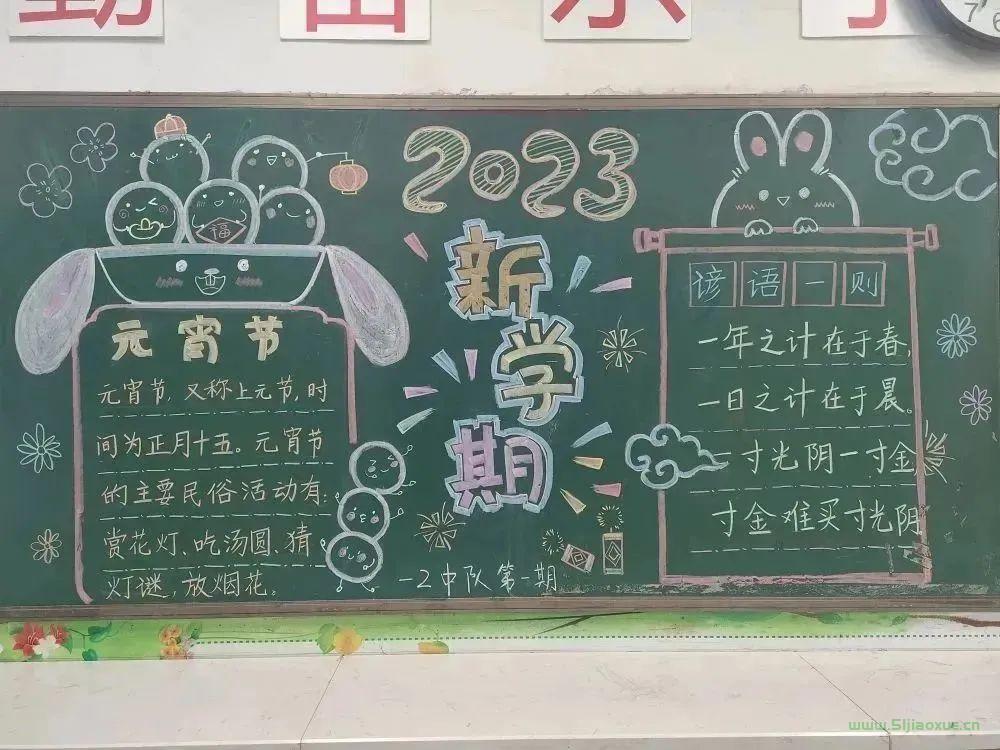 2023
新
学
期
元宵节
元宵节,又称上元节,时
间为正月十五。元宵节
的主要民俗活动有:
赏花灯、吃汤圆、猜
灯谜,放烟花。
福
一2中队第一期
谚语一则
一年之计在于春,
一日之计在于晨。
一寸光阴一寸金
寸金难买寸光阴
7
6
www.51jiaoxue.cn